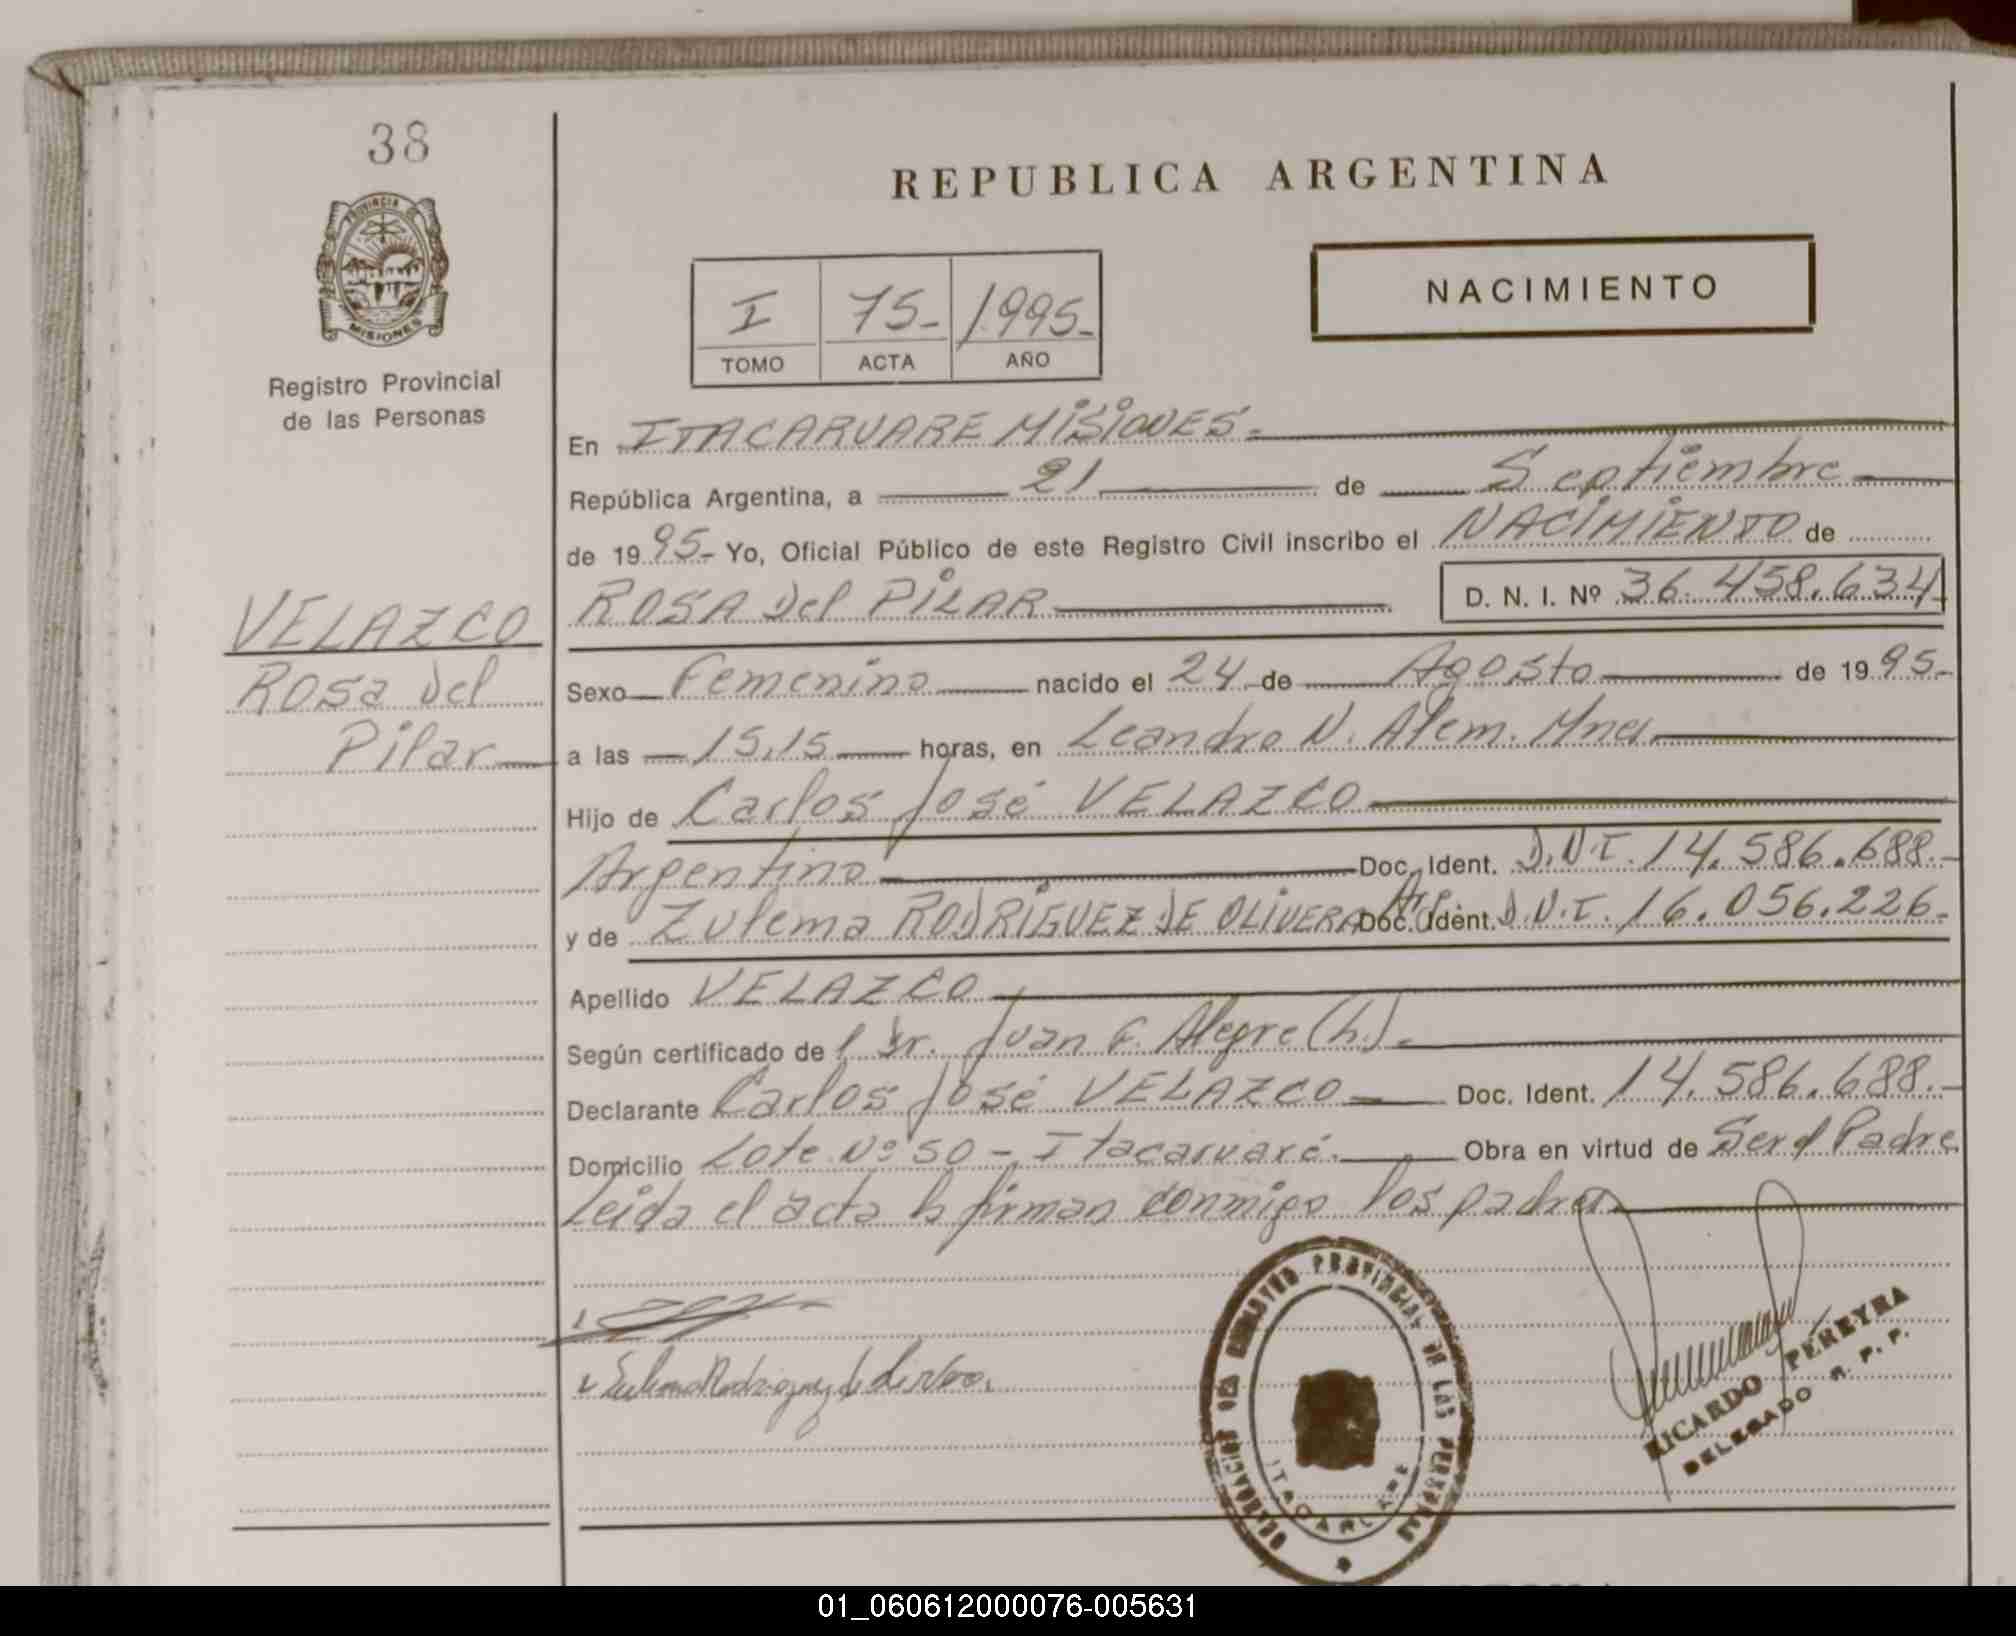 38
PROVINCIA DE
MISIONES
Registro Provincial
de las Personas
VELAZCO
Rosa del
Pilar
REPUBLICA ARGENTINA
NACIMIENTO
I 75- 1995-
TOMO ACTA AÑO
En ITACARUARE MISIONES.
República Argentina, a 21 de Septiembre
de 1995- Yo, Oficial Público de este Registro Civil inscribo el NACIMIENTO de
ROSA del PILAR D. N. I. Nº 36.458.634
Sexo Femenino nacido el 24 de Agosto de 1995-
a las 15,15 horas, en Leandro N. Alem. Mnes
Hijo de Carlos José VELAZCO
Argentino Doc. Ident. D.N.I. 14.586.688.-
y de Zulema RODRIGUEZ DE OLIVERA Arg. Doc. Ident. D.N.I. 16.056.226-
Apellido VELAZCO
Según certificado del Dr. Juan G. Alegre (h).-
Declarante Carlos José VELAZCO Doc. Ident. 14.586.688.-
Domicilio Lote Nº 50 - Itacaruaré. Obra en virtud de Ser el Padre
Leida el acta la firman conmigo los padres
DELEGACION DEL REGISTRO PROVINCIAL DE LAS PERSONAS
ITACARUARE
RICARDO PEREYRA
DELEGADO R. P. P.
01_060612000076-005631